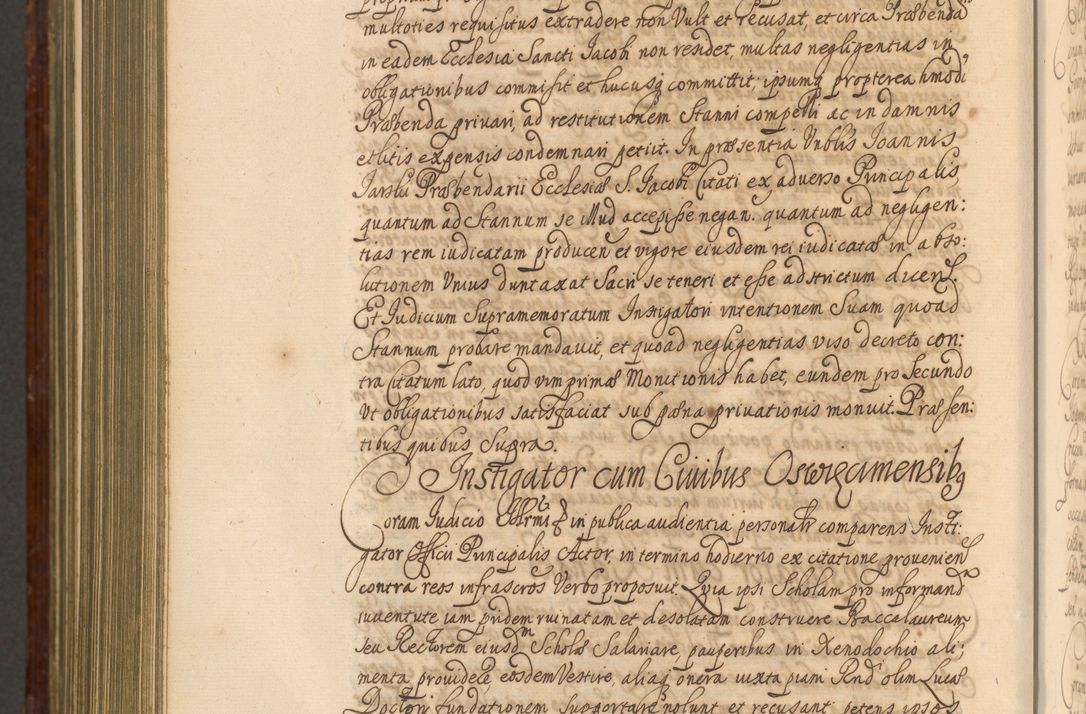 multoties requisitus extradere non Vult et recusat, et circa Præbenda
in eadem Ecclesia Sancti Jacobi non residet, multas negligentias in
obligationibus commisit et hucusq committit; ipsumq propterea hmodi
Præbenda privari, ad restitutionem Stanni compelli ac in damnis
et litis expensis condemnari petiit. In præsentia Vnblis Joannis
Præbendarii Ecclesiæ S. Jacobi Citati ex adverso Principalis,
quantum ad Stannum se illud accepisse negan. quantum ad negligen:
tias rem iudicatam producen et vigore eiusdem rei iudicatæ in abso:
lutionem Vnius duntaxat Sacri se teneri et esse adstrictum dicen.
Et Judicium Supramemoratum Instigatori intentionem Suam quoad
Stannum probare mandavit, et quoad negligentias viso decreto con:
tra Citatum lato, quod vim primæ Monitionis habet, eundem pro Secundo
Vt obligationibus satisfaciat sub pæna privationis monuit. Præsen:
tibus quibus Supra.
Instigator cum Civibus Oswiecimensib9
Coram Judicio in publica audientia personalr comparens Insti:
gator Officii Principalis Actor, in termino hodierno ex citatione provenien
contra reos infrascros Verbo proposuit. Quia ipsi Scholam pro informand
iuventute iam pridem ruinatam et desolatam construere Baccalaureum
seu Rectorem eiusdm Scholæ Salariare, pauperibus in Xenodochio ali:
menta providere, eosdem Vestire, aliaq onera iuxta piam Rnd olim Lucæ
Doctori fundationem supportare nolunt et recusant petens ipsos